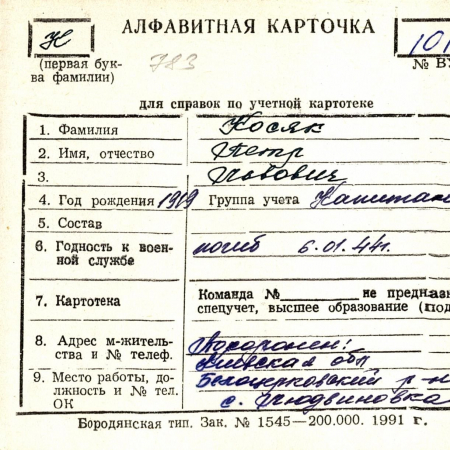 К АЛФАВИТНАЯ КАРТОЧКА 101
(первая бук-
ва фамилии) 783 № ВУ
для справок по учетной картотеке
1. Фамилия Косяк
2. Имя, отчество Петр
3.
4. Год рождения 1919 Группа учета Капитан
5. Состав
6. Годность к воен-
ной службе погиб 6.01.44г.
7. Картотека Команда № не предназ
спецучет, высшее образование (под
8. Адрес м-житель-
ства и № телеф. Похоронен:
Киевская обл
9. Место работы, до-
лжность и № тел.
ОК Белоцерковский р-н
с. Людвиновка
Бородянская тип. Зак. № 1545—200.000. 1991 г.